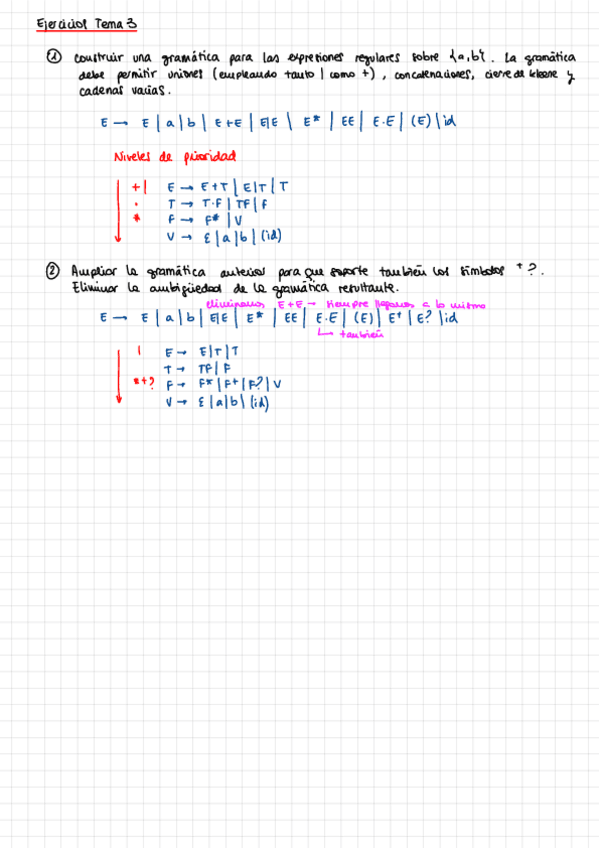 Ejercicios Tema 3
① Construir una gramática para las expresiones regulares sobre {a,b}. La gramática
debe permitir uniones (empleando tanto | como +), concatenaciones, cierre de kleene y
cadenas vacías.
E → ε | a | b | E+E | E|E | E* | EE | E·E | (E) | id
Niveles de prioridad
+ | E → E+T | E|T | T
· T → T·F | TF | F
* F → F* | V
V → ε | a | b | (id)
② Ampliar la gramática anterior para que soporte también los símbolos + ?.
Eliminar la ambigüedad de la gramática resultante.
eliminamos E+E → siempre llegamos a lo mismo
E → ε | a | b | E|E | E* | EE | E·E | (E) | E⁺ | E? | id
↳ también
| E → E|T | T
T → TF | F
*+? F → F* | F+ | F? | V
V → ε | a | b | (id)